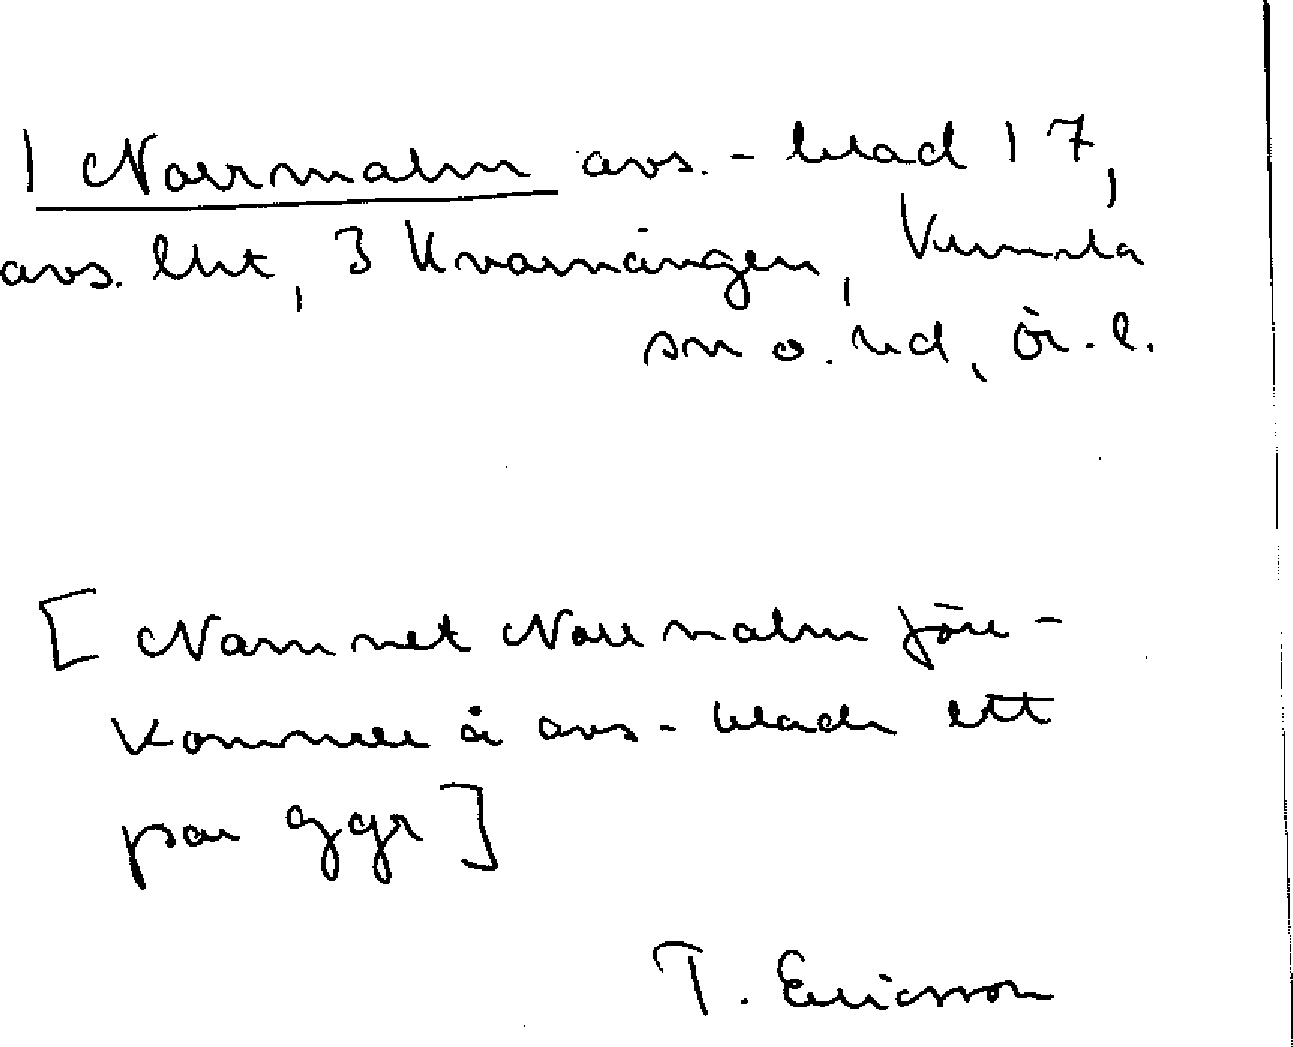 1 Norrmalm avs.-blad 17,
avs. lht, 3 Kvarnängen, Kumla
sn o. hd, Ör. l.
[Namnet Norrmalm före-
kommer å avs-bladen ett
par ggr]
T. Ericsson